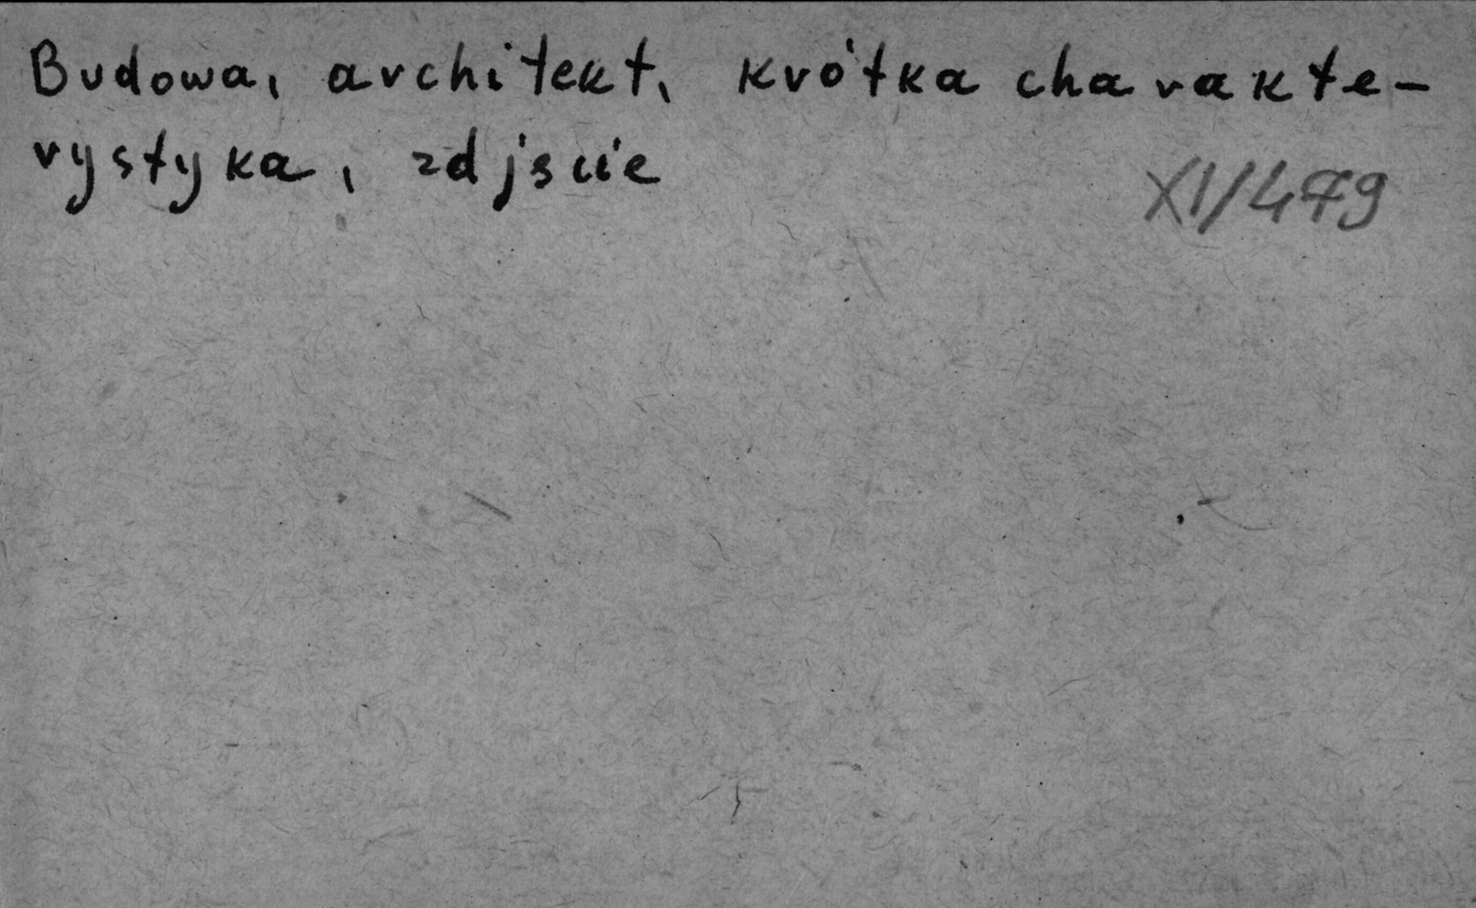 Budowa, architekt, krótka charakte-
rystyka, zdjęcie
XI/479